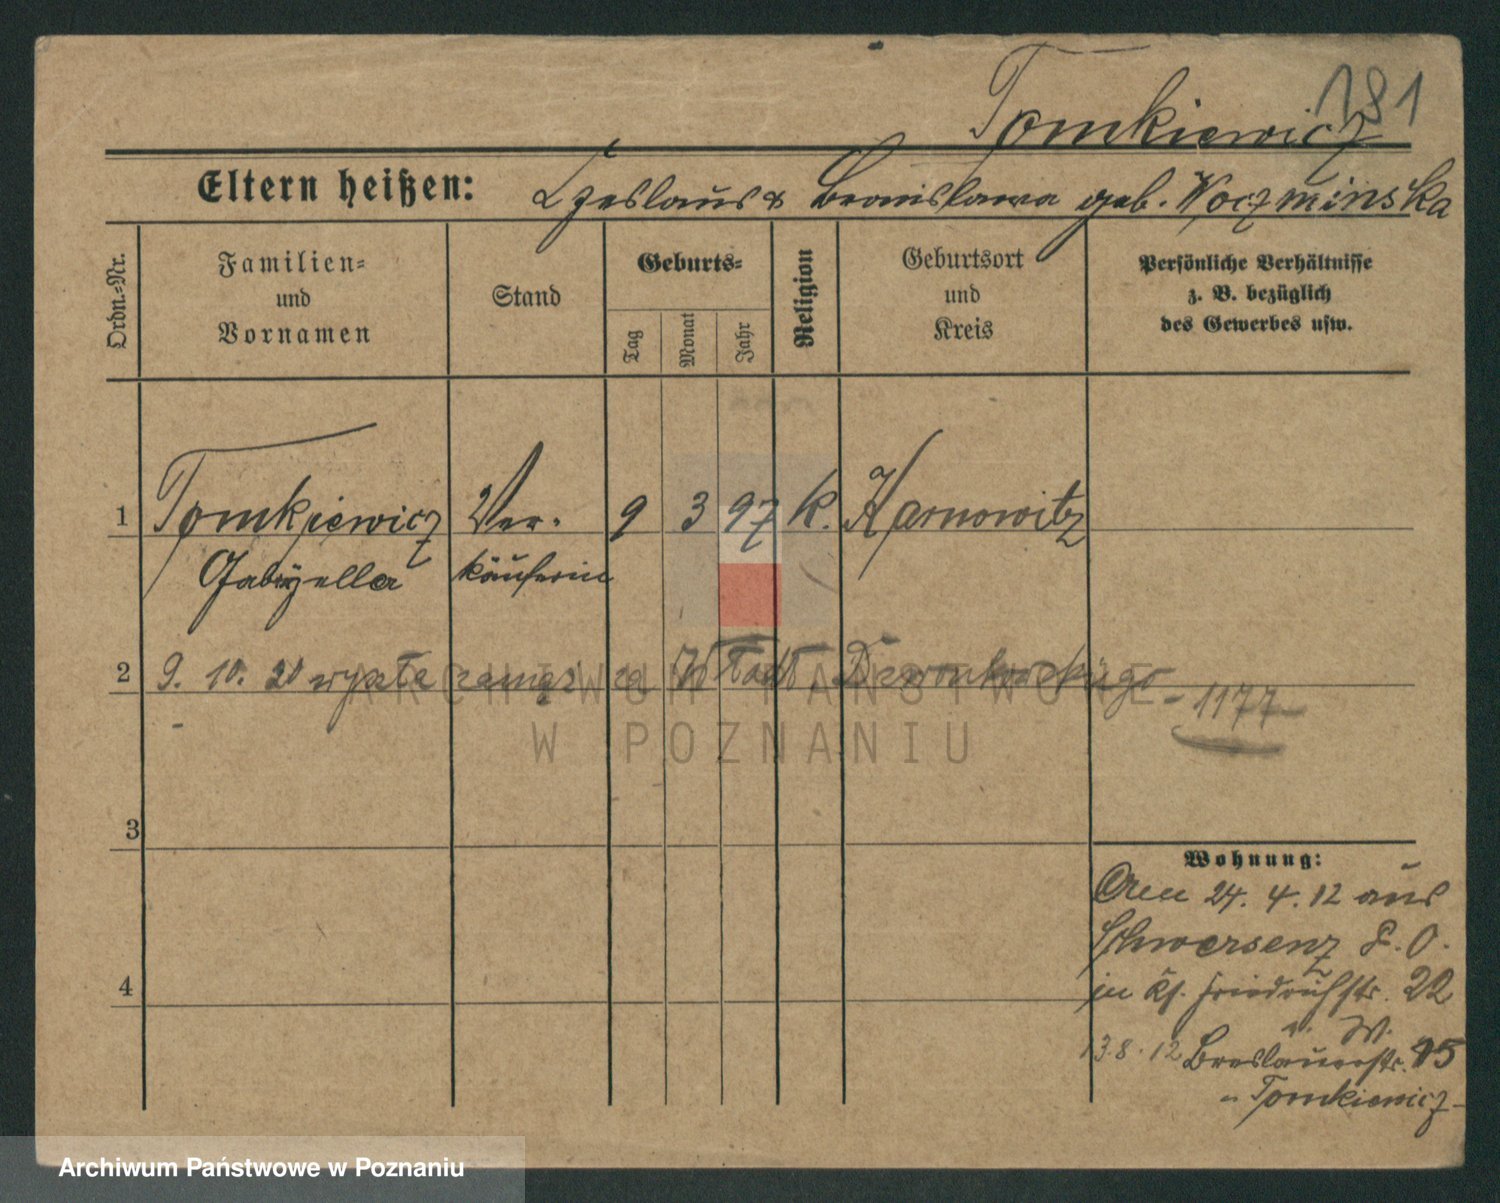 181
Tomkiewicz
Eltern heißen: Czeslaus & Bronislawa geb. Woczminska
Ordn.=Nr.
Familien=
und
Vornamen
Stand
Geburts=
Tag
Monat
Jahr
Religion
Geburtsort
und
Kreis
Persönliche Verhältnisse
z. B. bezüglich
des Gewerbes usw.
1 Tomkiewicz Ver- 9 3 97 k. Harnowitz
käuferin
2 9. 10. 20 wyszła zamąż za Wład - 1177 -
3
4
Wohnung:
Am 24. 4. 12 aus
Schwersenz P. O.
in Kf. Friedrichstr. 22
13.8.12 Breslauerstr. 15
- Tomkiewicz -
ARCHIWUM PAŃSTWOWE
W POZNANIU
Archiwum Państwowe w Poznaniu